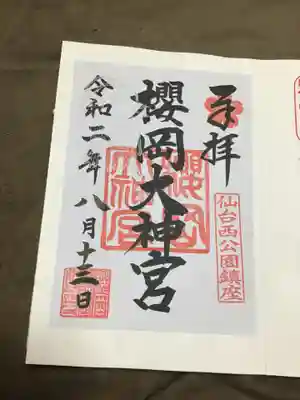 奉拝
仙台西公園鎮座
櫻岡大神宮
令和二年八月十三日